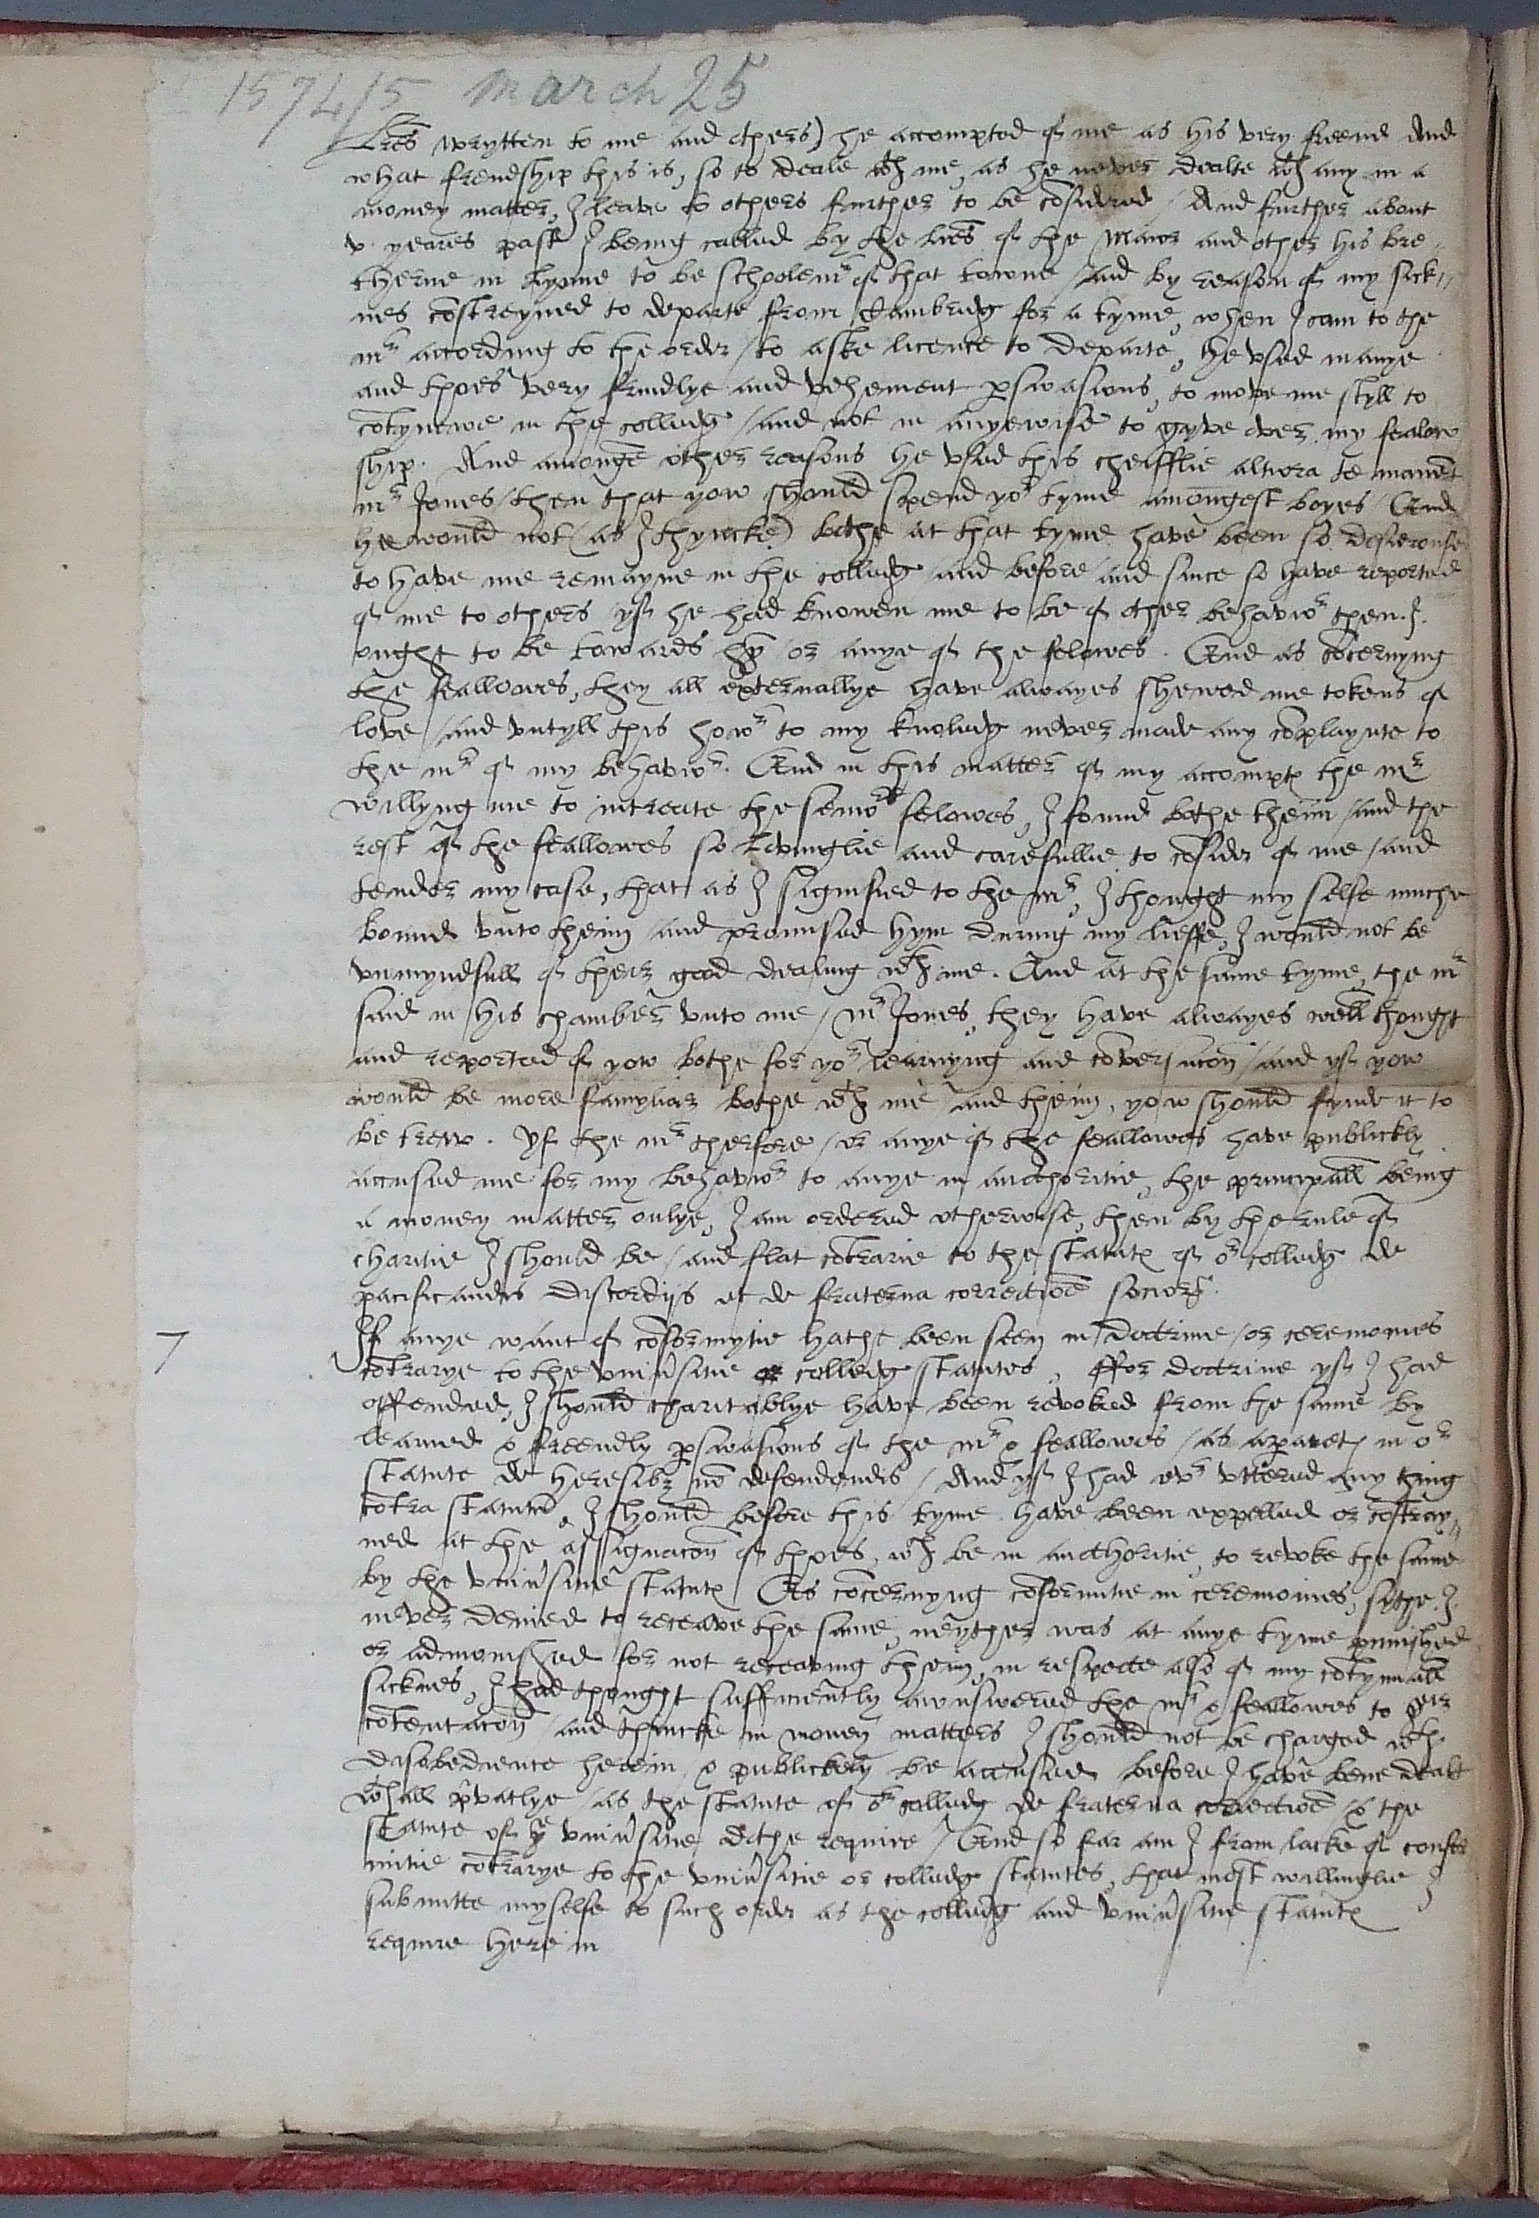 1574/5 march 25
Lres wrytten to me and others) he accompted of me as his very freend And
what frendship this is, so to deale wth me, as he never dealte wth any in a
money matter, I leave to others further to be cosidered / And further about
v. yeares past I being called by the lres of the Maior and other his bre„
therne in Lynne to be schoolemr of that towne / and by reason of my sick„
nes costreyned to departe from Cambridg for a tyme, when I cam to the
mr according to the order / to aske licence to departe, he vsed manye
and thoes very frindlye and vehement pswasions, to move me styll to
cotynewe in the colledg / and not in anyewise to gyve over my fealow
ship. And amonge other reasons he vsed this cheifflie altiora te manet
mr Jones / then that yow should spend yor tyme amongest boyes / And
he would not (as I thyncke) bothe at that tyme have been so desierouse
to have me remayne in the colledg / and before / and since so have reported
of me to others yf he had knowen me to be of other behavior then I
ought to be towards hym or anye of the felowes. And as cocernyng
the feallowes, they all externallye have alwayes shewed me tokens of
love / and vntyll this howr to my knoledg never made any coplaynte to
the mr of my behavior. And in this matter of my accompt the mr
willyng me to intreate the senior felowes, I found bothe theim / and the
rest of the feallowes so lovinglie and carefullie to cosider of me / and
tender my case, that as I signified to the mr, I thought my selfe muche
bound vnto theim and promised hym during my lieffe, I would not be
vnmyndfull of their good dealing wth me. And at the same tyme, the mr
said in his chamber vnto me / mr Jones, they have alwayes well thought
and reported of yow bothe for yor learnyng and coversacon / and yf yow
would be more famyliar bothe wth me and theim, yow should fynde it to
be trew. Yf the mr therfore / or anye of the feallowes have publickly
accused me for my behavior to anye in aucthoritie, the principall being
a money matter onlye, I am ordered otherwise, then by the rule of
charitie I should be / and flat cotrarie to the statute of or colledg de
pacificandis discordijs et de fraterna correctioe socior.
7 If anye want of coformytie hathe been seen in doctrine / or ceremonies
cotrarye to the vniusitie or colledg statutes, ffor doctrine yf I had
offended, I should charitablye have been revoked from the same by
learned & freendly pswasions of the mr & feallowes / as aparet in or
statute de heresibz no defendendis / And yf I had evr vttered any thing
cotra statutu, I should before this tyme have been expelled or costray„
ned at the assignacon of thoes, wch be in aucthoritie, to revoke the same
by the vniusitie statute As cocernyng coformitie in ceremonies, sithe I
never denied to receave the same, neyther was at anye tyme punished
or admonished for not receaving theim, in respecte also of my cotynuall
sicknes, I had thought sufficiently aunswered the mr & feallowes to their
cotentacon and thincke in money matters I should not be charged wth
disobedience herein / & publickely be accused before I have bene dealt
wthall privatlye / as the statute of or colledg de fraterna correctioe / & the
statute of ye vniusitie dothe require / And so far am I from lacke of confor
mitie cotrarye to the vniusitie or colledg statutes, that most willinglie I
submitte myselfe to such order as the colledg and vniusitie statute
require here in